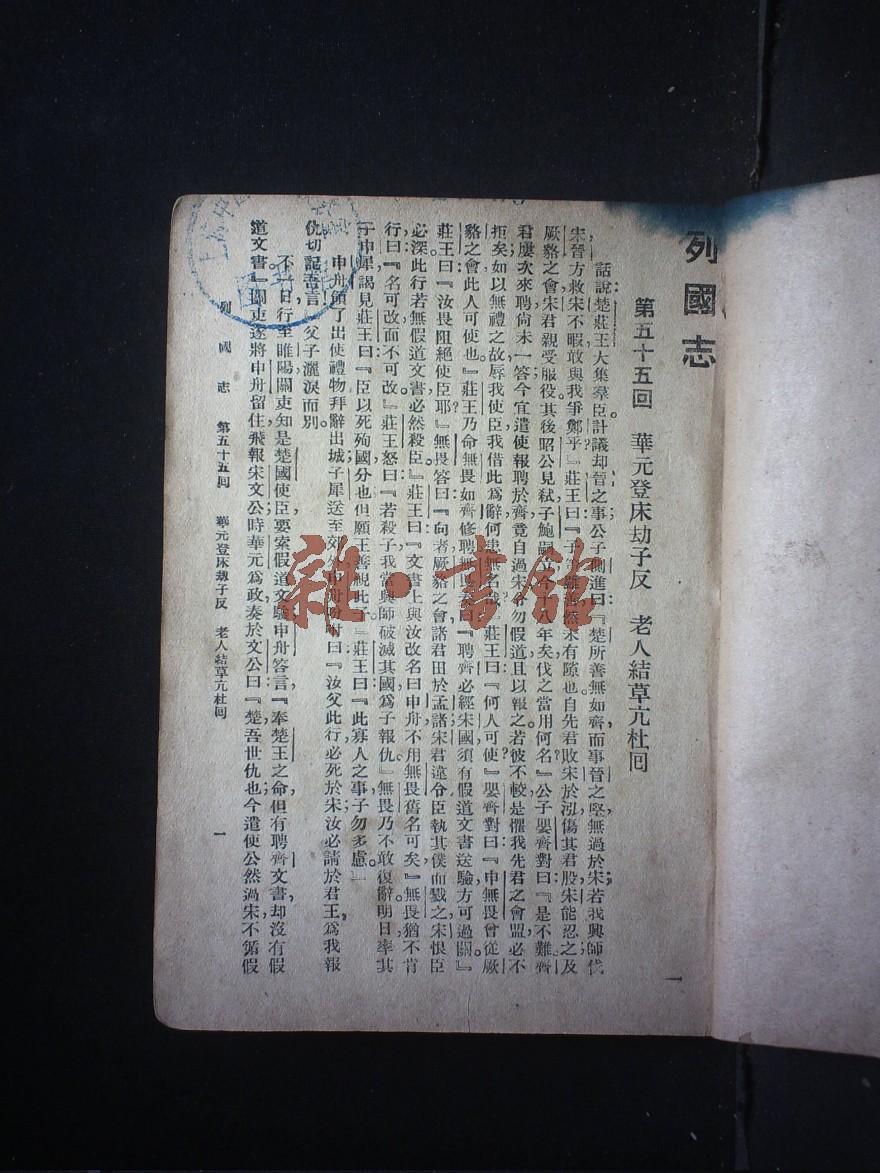 列國志
第五十五回 華元登床劫子反 老人結草亢杜回
話說楚莊王大集羣臣計議却晉之事公子側進曰『楚所善無如齊而事晉之堅無過於宋若我興師伐
宋晉方救宋不暇敢與我爭鄭乎』莊王曰『子策雖善然未有隙也自先君敗宋於泓傷其君股宋能忍之及
厥貉之會宋君親受服役其後昭公見弒子鮑嗣立今十八年矣伐之當用何名』公子嬰齊對曰『是不難齊
君屢次來聘尙未一答今宜遣使報聘於齊竟自過宋令勿假道且以報之若彼不較是懼我先君之會盟必不
拒矣如以無禮之故辱我使臣我借此爲辭何患無名哉』莊王曰『何人可使』嬰齊對曰『申無畏曾從厥
貉之會此人可使也』莊王乃命無畏如齊修聘無畏曰『聘齊必經宋國須有假道文書送驗方可過關』
莊王曰『汝畏阻絕使臣耶』無畏答曰『向者厥貉之會諸君田於孟諸宋君違令臣執其僕而戮之宋恨臣
必深此行若無假道文書必然殺臣』莊王曰『文書上與汝改名曰申舟不用無畏舊名可矣』無畏猶不肯
行曰『名可改面不可改』莊王怒曰『若殺子我當興師破滅其國爲子報仇』無畏乃不敢復辭明日率其
子申犀謁見莊王曰『臣以死殉國分也但願王善視此子』莊王曰『此寡人之事子勿多慮』
申舟領了出使禮物拜辭出城子犀送至郊外申舟吩咐曰『汝父此行必死於宋汝必請於君王爲我報
仇切記吾言』父子灑淚而別
不一日行至睢陽關吏知是楚國使臣要索假道文驗申舟答言『奉楚王之命但有聘齊文書却沒有假
道文書』關吏遂將申舟留住飛報宋文公時華元爲政奏於文公曰『楚吾世仇也今遣使公然過宋不循假
列國志 第五十五回 華元登床劫子反 老人結草亢杜回 一
一
雜·書館